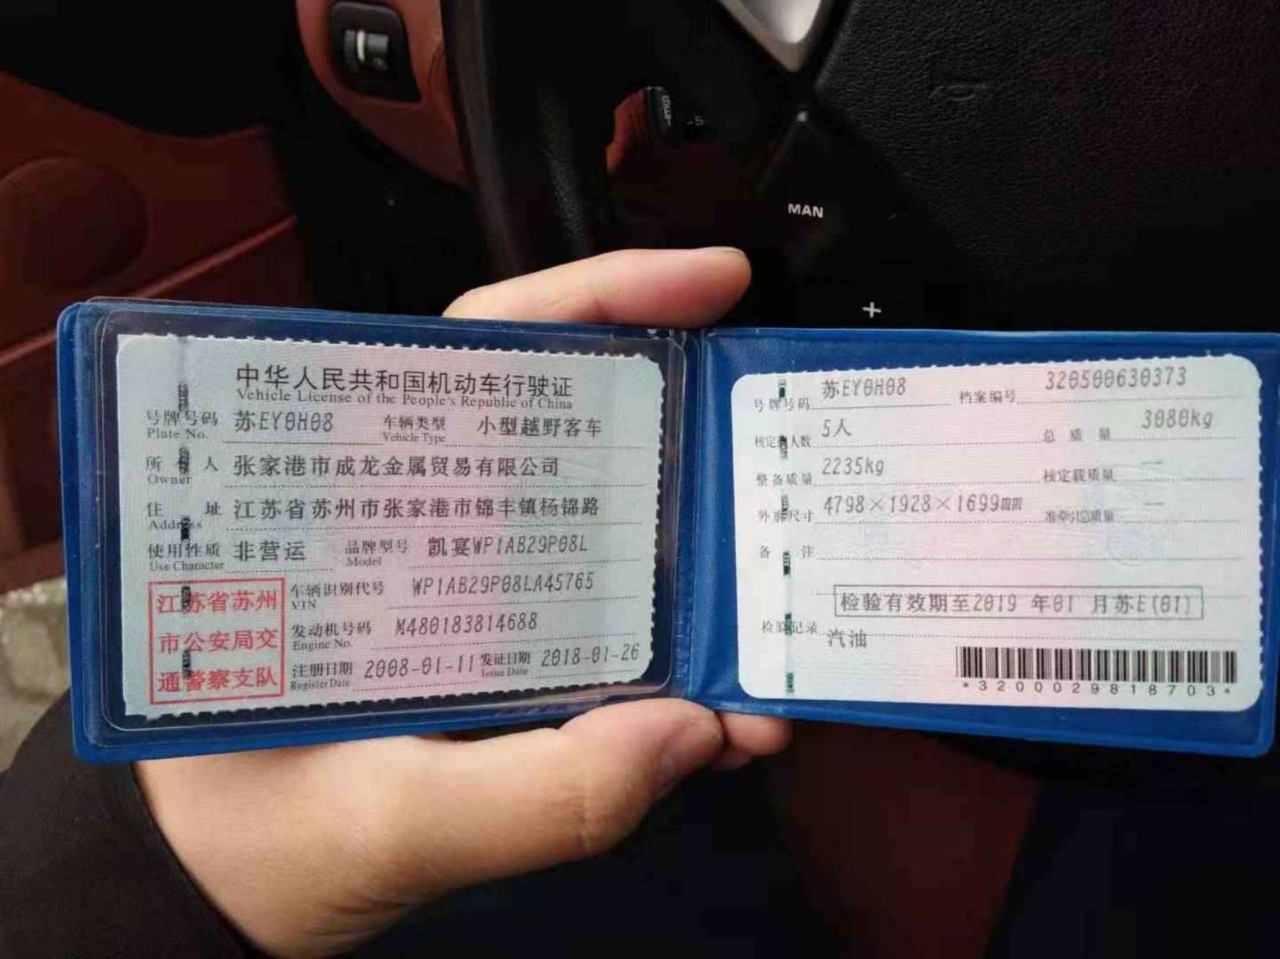 MAN
+
中华人民共和国机动车行驶证
Vehicle License of the People's Republic of China
号牌号码 苏EY0H08 车辆类型 小型越野客车
Plate No. Vehicle Type
所有人 张家港市成龙金属贸易有限公司
Owner
住址 江苏省苏州市张家港市锦丰镇杨锦路
Address
使用性质 非营运 品牌型号 凯宴WP1AB29P08L
Use Character Model
江苏省苏州
市公安局交
通警察支队
车辆识别代号 WP1AB29P08LA45765
VIN
发动机号码 M480183814688
Engine No.
注册日期 2008-01-11 发证日期 2018-01-26
Register Date Issue Date
号牌号码 苏EY0H08 档案编号 320500630373
核定载人数 5人 总质量 3080kg
整备质量 2235kg 核定载质量 --
外廓尺寸 4798×1928×1699mm 准牵引总质量 --
备注
检验有效期至2019 年01 月苏E(01)
检验记录
汽油
*3200029818703*